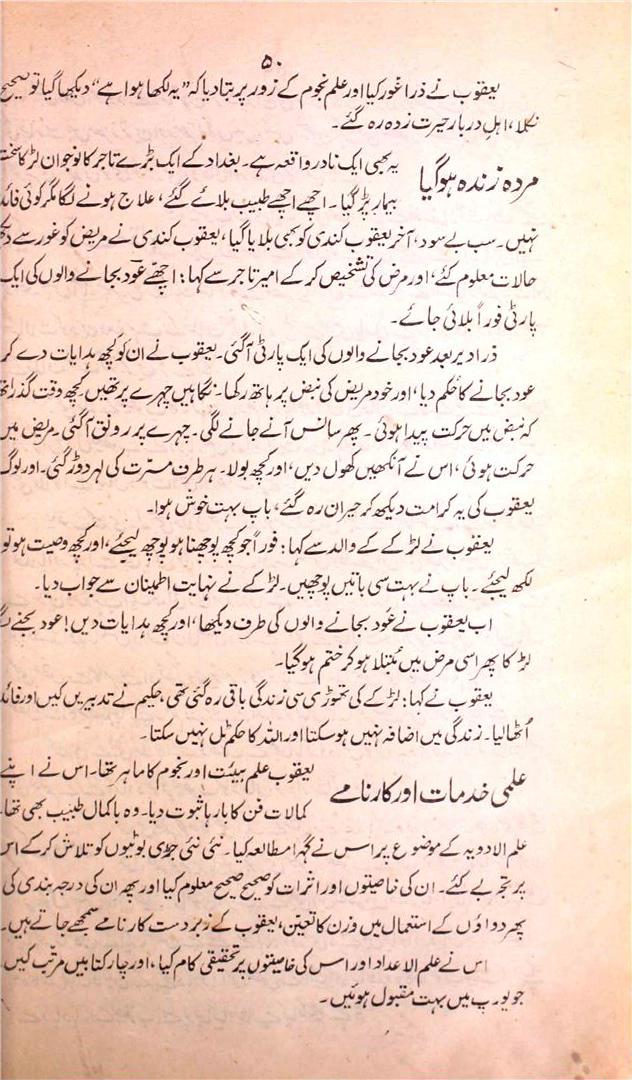 ۵۰
یعقوب نے ذرا غور کیا اور علم نجوم کے زور پر بتا دیا کہ ”یہ لکھا ہوا ہے“ دیکھا گیا تو صحیح
نکلا، اہل دربار حیرت زدہ رہ گئے۔
مردہ زندہ ہوگیا
یہ بھی ایک نادر واقعہ ہے۔ بغداد کے ایک بڑے تاجر کا نوجوان لڑکا سخت
بیمار پڑ گیا۔ اچھے اچھے طبیب بلائے گئے، علاج ہونے لگا مگر کوئی
نہیں۔ سب بے سود، آخر یعقوب کندی کو بھی بلایا گیا، یعقوب کندی نے مریض کو غور سے
حالات معلوم کئے، اور مرض کی تشخیص کر کے امیر تاجر سے کہا: اچھے عود بجانے والوں کی ایک
پارٹی فوراً بلائی جائے۔
ذرا دیر بعد عود بجانے والوں کی ایک پارٹی آگئی۔ یعقوب نے ان کو کچھ ہدایات دے کر
عود بجانے کا حکم دیا، اور خود مریض کی نبض پر ہاتھ رکھا۔ نگاہیں چہرے پر تھیں کچھ وقت گذرا
کہ نبض میں حرکت پیدا ہوئی۔ پھر سانس آنے جانے لگی۔ چہرے پر رونق آگئی۔ مریض میں
حرکت ہوئی، اس نے آنکھیں کھول دیں، اور کچھ بولا۔ ہر طرف مسرت کی لہر دوڑ گئی۔ اور لوگ
یعقوب کی یہ کرامت دیکھ کر حیران رہ گئے، باپ بہت خوش ہوا۔
یعقوب نے لڑکے کے والد سے کہا: فوراً جو کچھ پوچھنا ہو پوچھ لیجئے، اور کچھ وصیت ہو تو
لکھ لیجئے۔ باپ نے بہت سی باتیں پوچھیں۔ لڑکے نے نہایت اطمینان سے جواب دیا۔
اب یعقوب نے عود بجانے والوں کی طرف دیکھا، اور کچھ ہدایات دیں! عود بجنے
لڑکا پھر اسی مرض میں مُبتلا ہو کر ختم ہوگیا۔
یعقوب نے کہا: لڑکے کی تھوڑی سی زندگی باقی رہ گئی تھی، حکیم نے تدبیریں کیں اور
اُٹھا لیا۔ زندگی میں اضافہ نہیں ہو سکتا اور اللہ کا حکم ٹل نہیں سکتا۔
علمی خدمات اور کارنامے
یعقوب علم ہیئت اور نجوم کا ماہر تھا۔ اس نے اپنے
کمالات فن کا بارہا ثبوت دیا۔ وہ باکمال طبیب بھی تھا۔
علم الادویہ کے موضوع پر اس نے گہرا مطالعہ کیا۔ نئی نئی جڑی بوٹیوں کو تلاش کر کے اس
پر تجربے کئے۔ ان کی خاصیتوں اور اثرات کو صحیح صحیح معلوم کیا اور پھر ان کی درجہ بندی کی
پھر دواؤں کے استعمال میں وزن کا تعین، یعقوب کے زبردست کارنامے سمجھے جاتے ہیں۔
اس نے علم الاعداد اور اس کی خاصیتوں پر تحقیقی کام کیا، اور چار کتابیں مرتب کیں
جو یورپ میں بہت مقبول ہوئیں۔